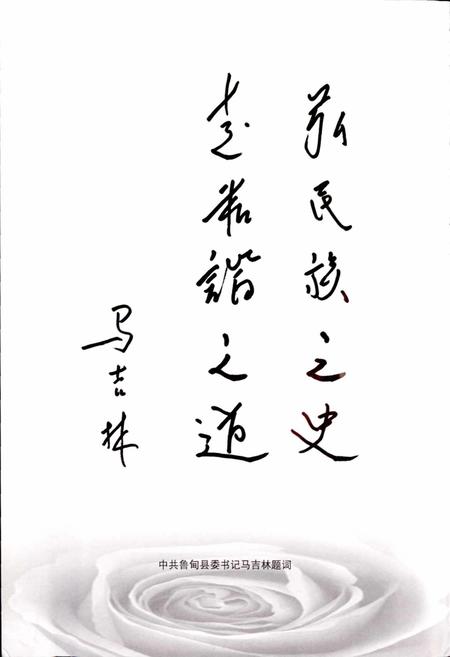 民族之史
走和諧之道
马吉林
中共鲁甸县委书记马吉林题词